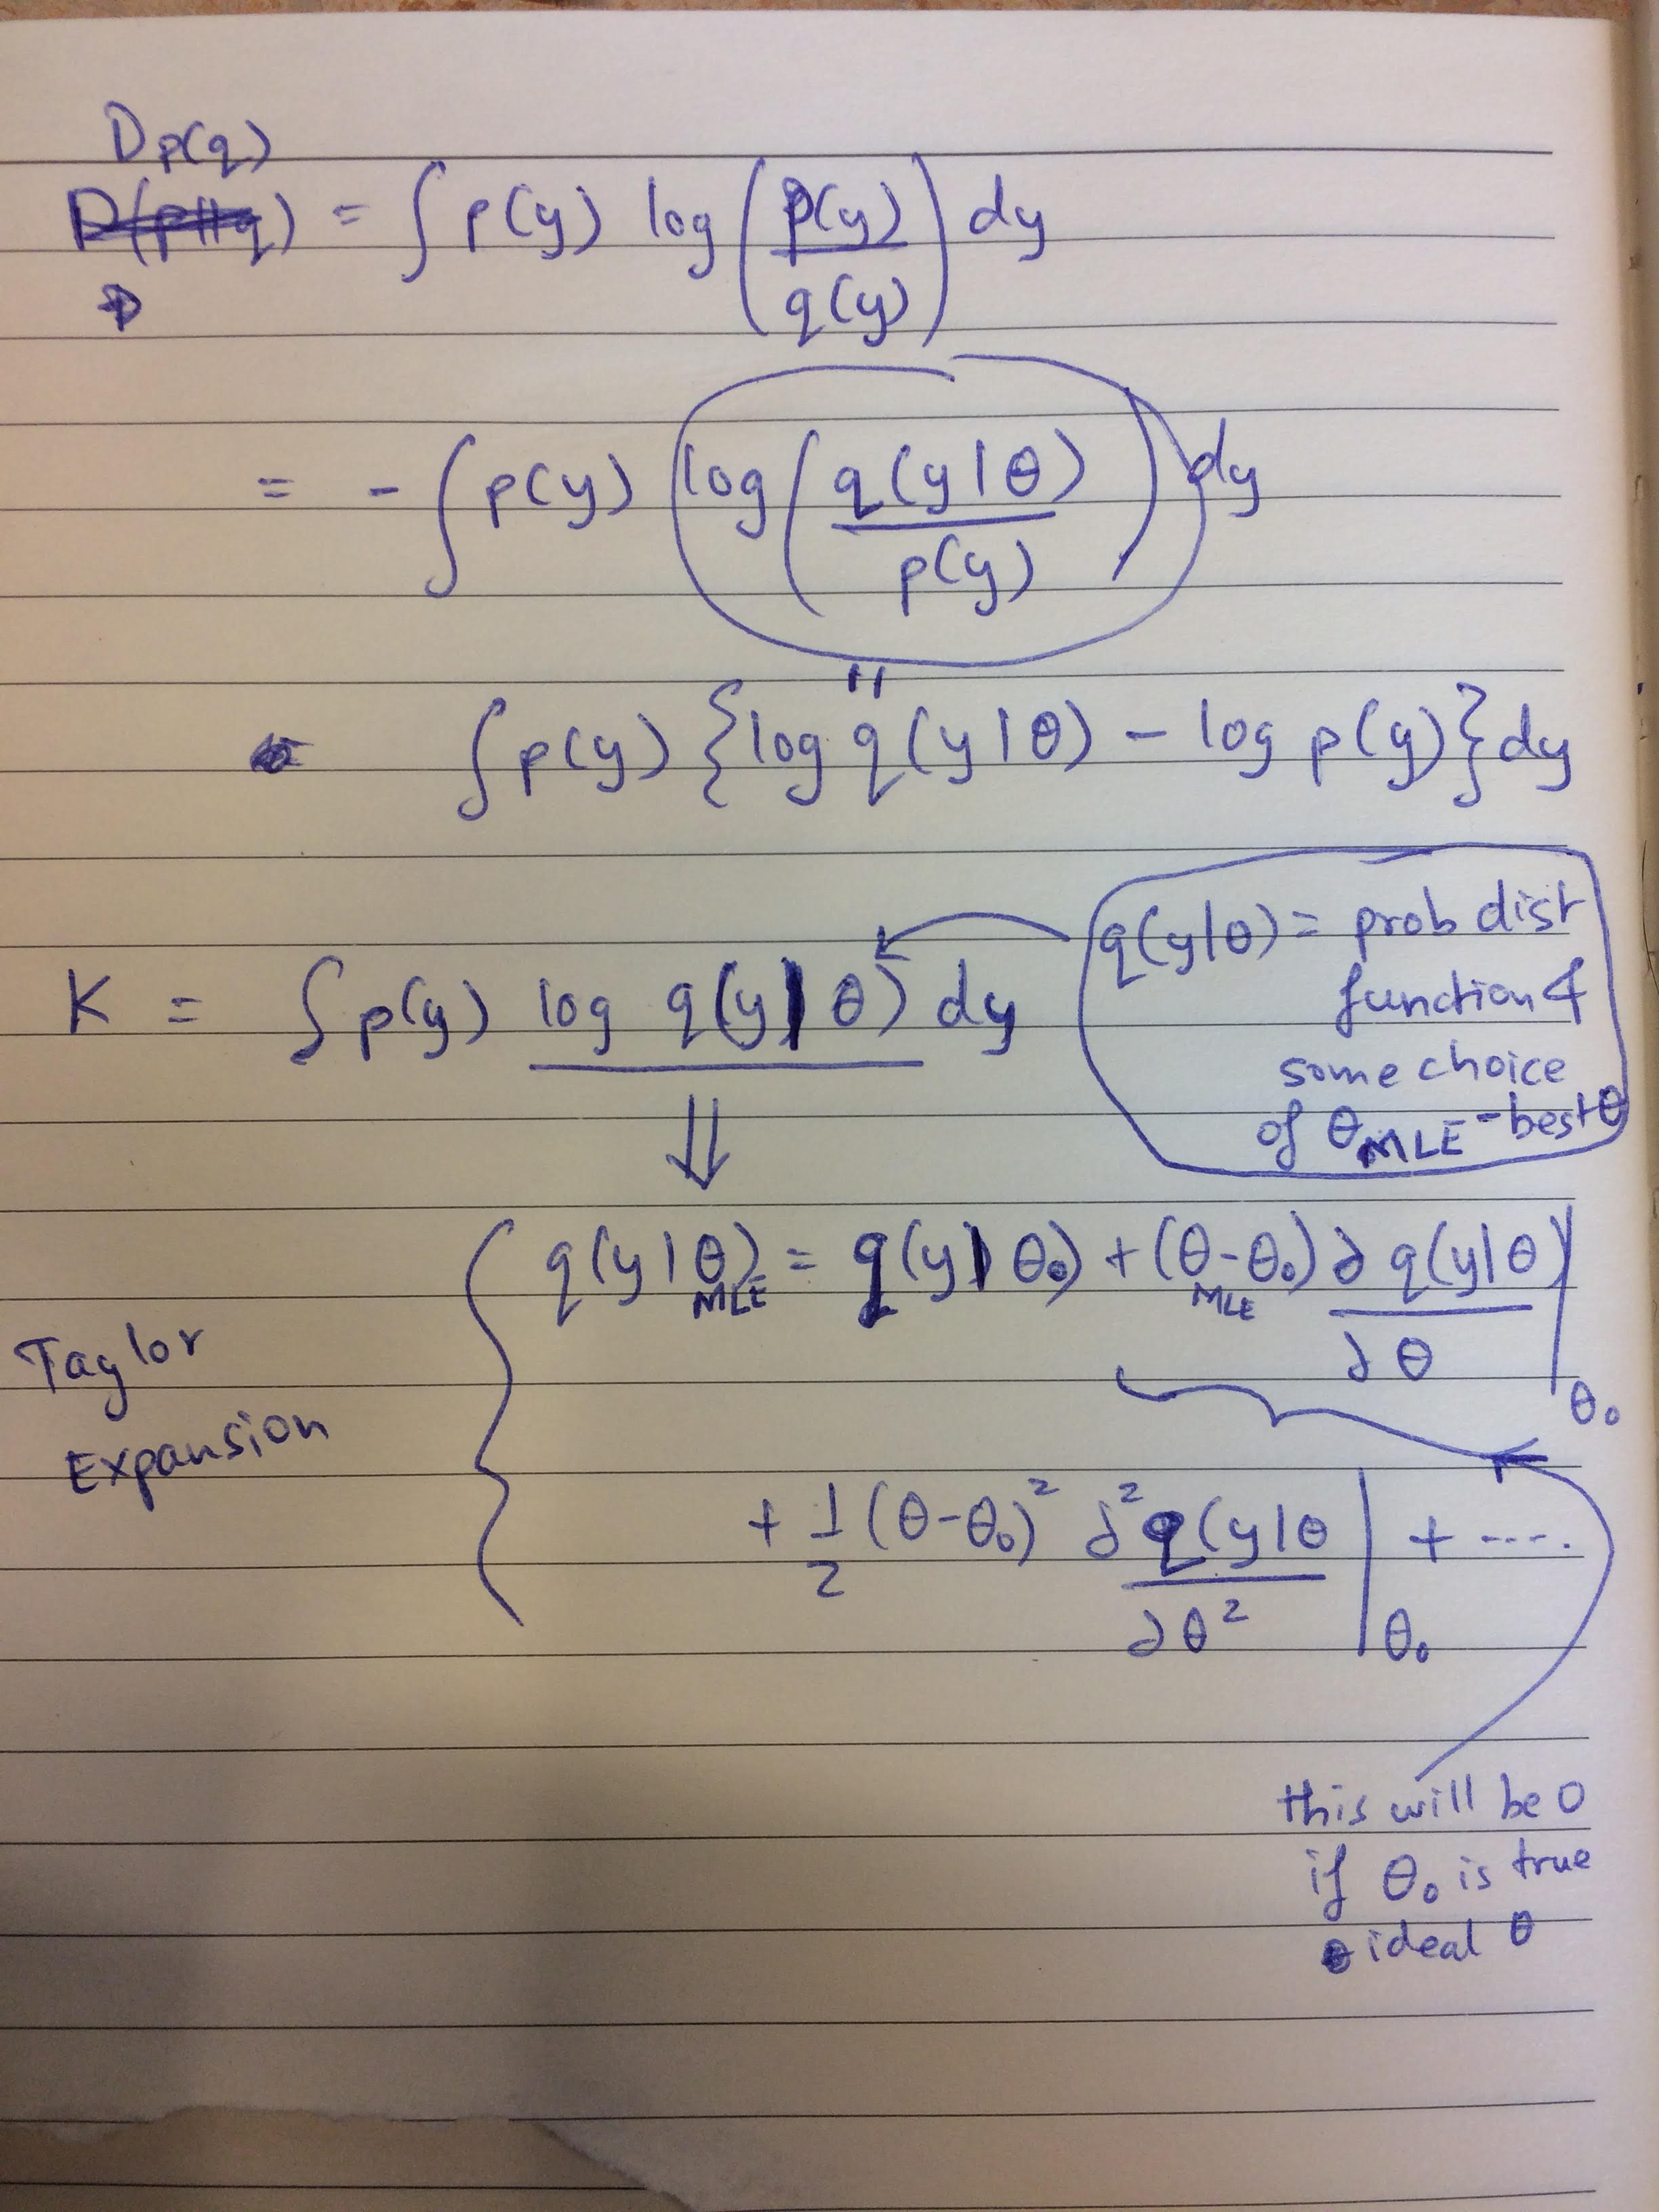 D p(q)
D(p||q) = ∫ p(y) log (p(y) / q(y)) dy
= - ∫ p(y) log ( q(y|θ) / p(y) ) dy
"
∫ p(y) { log q(y|θ) - log p(y) } dy
q(y|θ) = prob dist
function &
some choice
of θ_MLE - best θ
K = ∫ p(y) log q(y|θ) dy
⇓
Taylor
Expansion
q(y|θ_MLE) = q(y|θ₀) + (θ_MLE - θ₀) ∂ q(y|θ) / ∂θ |_θ₀
+ 1/2 (θ-θ₀)² ∂² q(y|θ / ∂θ² |_θ₀ + ....
this will be 0
if θ₀ is true
ideal θ